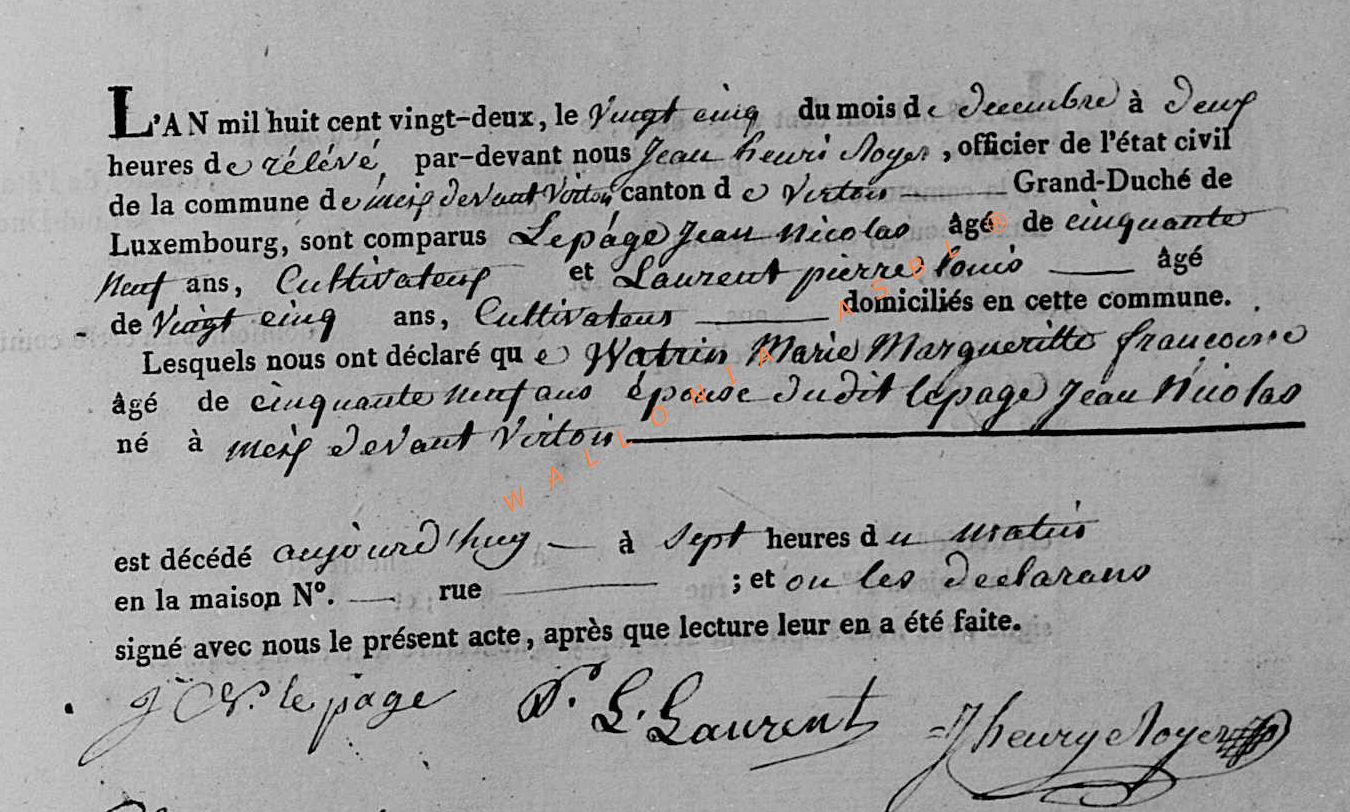 L'AN mil huit cent vingt-deux, le Vingt cinq du mois de decembre à deux
heures de rélévé, par-devant nous Jean henri Noyer, officier de l'état civil
de la commune de meix devant Virton canton de Virton Grand-Duché de
Luxembourg, sont comparus Lepage Jean Nicolas âgé de cinquante
neuf ans, Cultivateur et Laurent pierre louis âgé
de Vingt cinq ans, Cultivateur domiciliés en cette commune.
Lesquels nous ont déclaré que Watrin Marie Margueritte francoise
âgé de cinquante neuf ans épouse dudit lepage Jean Nicolas
né à meix devant Virton
est décédé aujourd'huy à sept heures du matin
en la maison N°. rue ; et ou les declarans
signé avec nous le présent acte, après que lecture leur en a été faite.
J N. le page P. L. Laurent J henry Noyer
WALLONIA ASBL ®